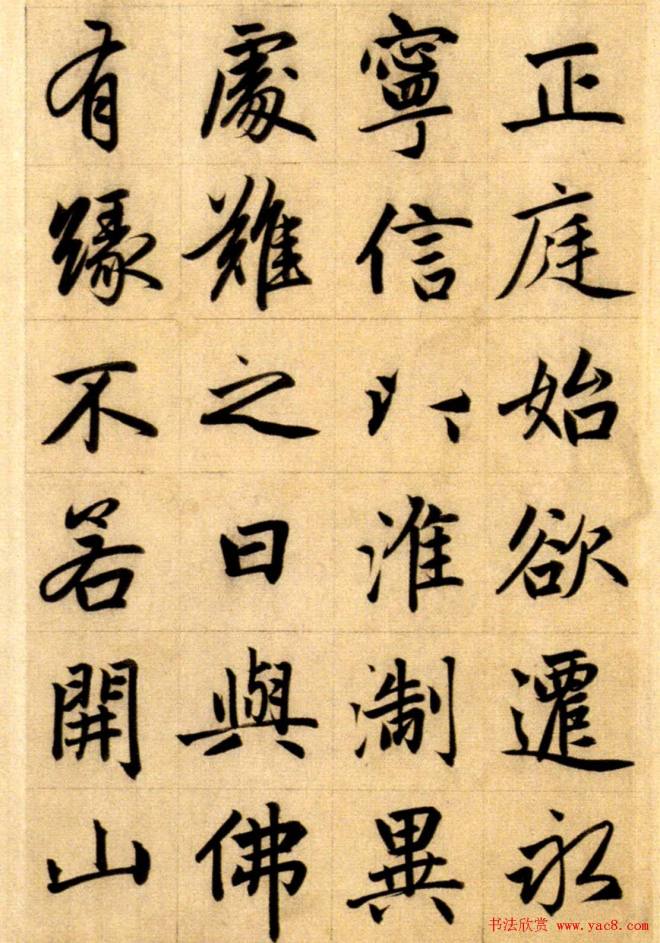 正庭始欲遷永
寧信以淮淛異
處難之曰與佛
有緣不若開山
书法欣赏 www.yac8.com